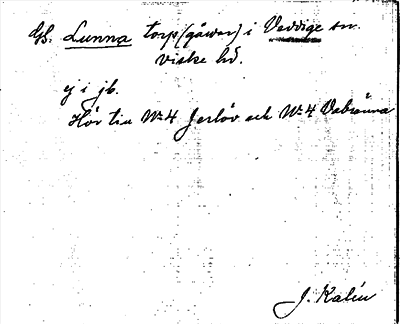 Gs. Lunna torp (gåwor) i Veddige sn.
Viske hd.
ej i jb.
Hör till No 4 Jerlöv och No 4 Vabränna
J. Kalén